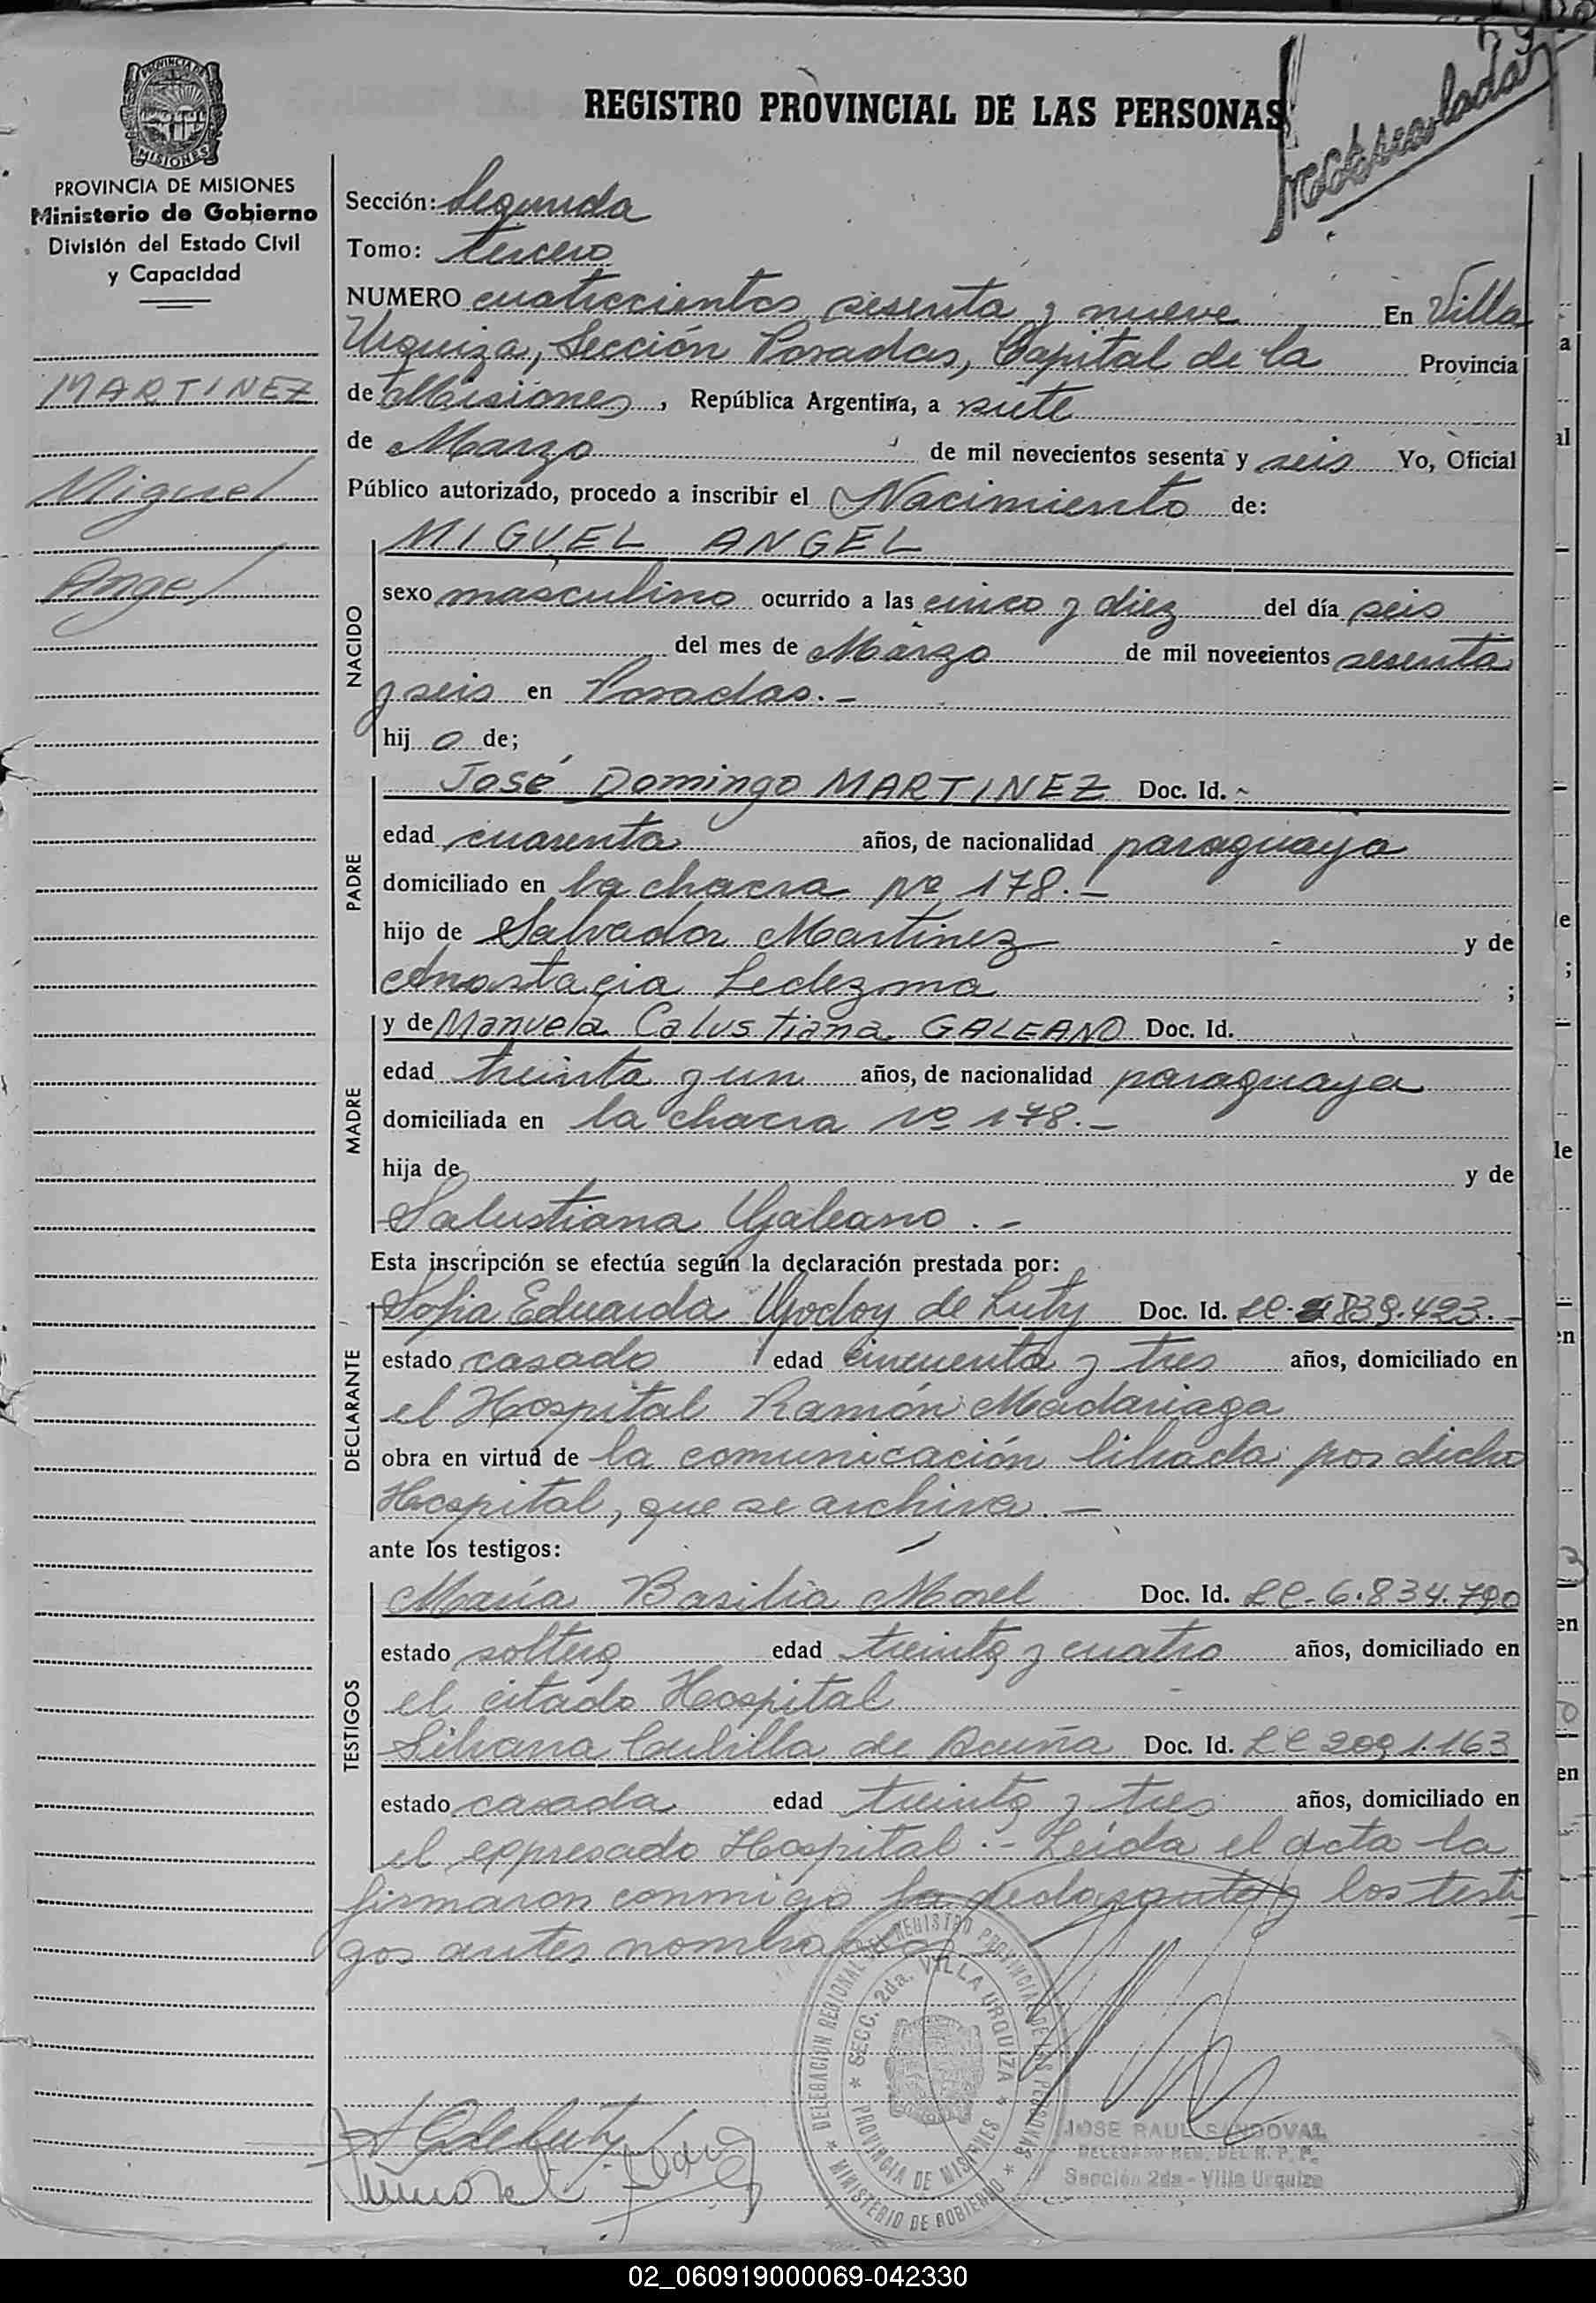 REGISTRO PROVINCIAL DE LAS PERSONAS
PROVINCIA DE MISIONES
Ministerio de Gobierno
División del Estado Civil
y Capacidad
MARTINEZ
Miguel
Angel
Sección: Segunda
Tomo: tercero
NUMERO cuatrocientos sesenta y nueve En Villa
Urquiza, Sección Posadas, Capital de la Provincia
de Misiones, República Argentina, a siete
de Marzo de mil novecientos sesenta y seis Yo, Oficial
Público autorizado, procedo a inscribir el Nacimiento de:
NACIDO
MIGUEL ANGEL
sexo masculino ocurrido a las cinco y diez del día seis
del mes de Marzo de mil novecientos sesenta
y seis en Posadas.-
hij o de;
PADRE
José Domingo MARTINEZ Doc. Id. -
edad cuarenta años, de nacionalidad paraguaya
domiciliado en la chacra Nº 178.-
hijo de Salvador Martinez y de
Anastacia Ledezma ;
MADRE
y de Manuela Calustiana GALEANO Doc. Id.
edad treinta y un años, de nacionalidad paraguaya
domiciliada en la chacra Nº 178.-
hija de y de
Salustiana Galeano.-
Esta inscripción se efectúa según la declaración prestada por:
DECLARANTE
Sofia Eduarda Godoy de Luty Doc. Id. LC- 839.423.-
estado casado edad cincuenta y tres años, domiciliado en
el Hospital Ramón Madariaga
obra en virtud de la comunicación librada por dicho
Hospital, que se archiva.-
ante los testigos:
TESTIGOS
María Basilia Morel Doc. Id. LC-6.834.790
estado soltera edad treinta y cuatro años, domiciliado en
el citado Hospital
de Acuña Doc. Id. LC 2091.163
estado casada edad treinta y tres años, domiciliado en
el expresado Hospital.- Leida el acta la
firmaron conmigo la declarante y los testi
gos antes nombrados
DELEGACION REGIONAL DEL REGISTRO PROVINCIAL DE LAS PERSONAS
SECC. 2da. VILLA URQUIZA
PROVINCIA DE MISIONES
MINISTERIO DE GOBIERNO
JOSE RAUL SANDOVAL
DELEGADO REG. DEL R. P. P.
Sección 2da - Villa Urquiza
02_060919000069-042330